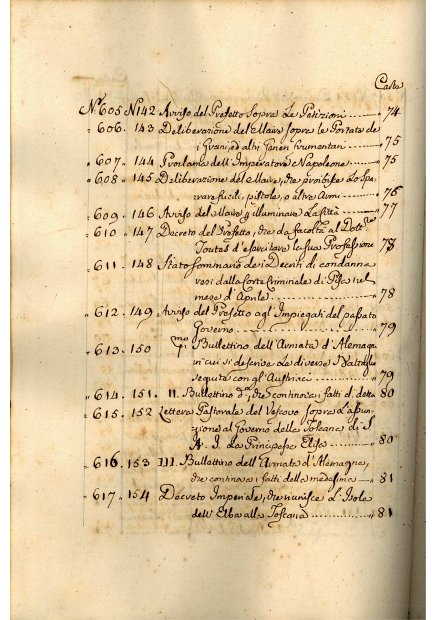 Carta
N.º 605 N 142 Avviso del Prefetto sopra Le Petizioni 74
" 606. 143 Deliberazione del Maire sopra le Portate de
i Grani, ed altri Generi frumentari 75
" 607. 144 Proclama dell'Imperatore Napoleone 75
" 608. 145 Deliberazione del Maire, che proibisce Lo spa
rare fucili, pistole, o altre Armi 76
" 609. 146 Avviso del Maire illuminare La Città 77
" 610. 147 Decreto del Prefetto, che da facoltà al Dott.re
Toutas d'esercitare la sua Professione 78
" 611. 148 Stato Sommario dei Decreti di condanna
resi dalla Corte Criminale di Pisa nel
mese d'Aprile 78
" 612. 149 Avviso del Prefetto agl'Impiegati del passato
Governo 79
" 613. 150 Bullettino dell'Armata d'Alemagna
in cui si descrive Le diverse
seguite con gl'Austriaci 79
" 614. 151. II. Bullettino d.º, che continova i fatti di detta 80
" 615. 152 Lettera Pastorale del Vescovo sopra L'assun
zione al Governo della Toscana di S.
A. I. La Principessa Elisa 80
" 616. 153 III. Bullettino dell'Armata d'Alemagna,
che continova i fatti della medesima 81
" 617. 154 Decreto Imperiale, che riunisce L'Isola
dell'Elba alla Toscana 81